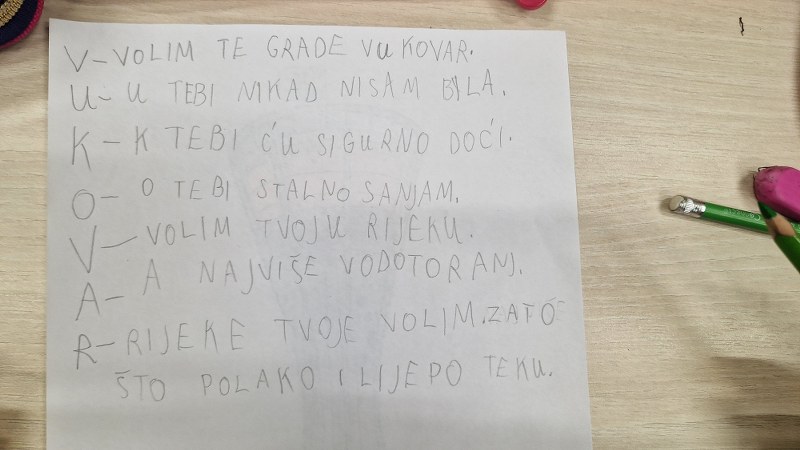 V-VOLIM TE GRADE VUKOVAR.
U- U TEBI NIKAD NISAM BILA.
K- K TEBI ĆU SIGURNO DOĆI.
O- O TEBI STALNO SANJAM.
V-VOLIM TVOJU RIJEKU.
A- A NAJVIŠE VODOTORANJ.
R-RIJEKE TVOJE VOLIM.ZATO
ŠTO POLAKO I LIJEPO TEKU.